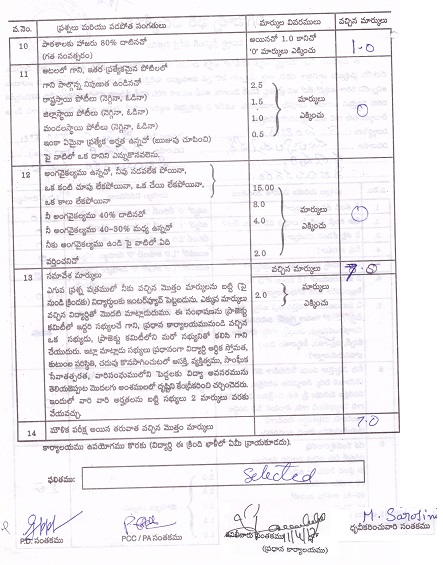 వ.నెం. ప్రశ్నలు మరియు పడవోత సంగతులు మార్కుల వివరములు వచ్చిన మార్కులు
10 పాఠశాలకు హాజరు 80% దాటినచో అయినచో 1.0 కానిచో 1-0
(గత సంవత్సరం) '0' మార్కులు ఎక్కించు
11 ఆటలలో గాని, ఇతర ప్రత్యేకమైన పోటీలలో
గాని పాల్గొన్న నిపుణత ఉండినచో 2.5
రాష్ట్రస్థాయి పోటీలు (నెగ్గినా, ఓడినా) 1.5 మార్కులు 0
జిల్లాస్థాయి పోటీలు (నెగ్గినా, ఓడినా) 1.0 ఎక్కించు
మండలస్థాయి పోటీలు (నెగ్గినా, ఓడినా) 0.5
ఇంకా ఏమైనా ప్రత్యేక అర్హత ఉన్నచో (ఋజువు చూపించి)
పై వాటిలో ఒక దానిని ఎన్నుకొనవలెను.
12 అంగవైకల్యము ఉన్నచో, నీవు నడవలేక పోయినా, 15.00
ఒక కంటి చూపు లేకపోయినా, ఒక చేయి లేకపోయినా, 8.0 మార్కులు
ఒక కాలు లేకపోయినా 4.0 ఎక్కించు 0
నీ అంగవైకల్యము 40% దాటినచో
నీ అంగవైకల్యము 40-30% మధ్య ఉన్నచో
నీకు అంగవైకల్యము ఉండి పై వాటిలో ఏది 2.0
వర్తించనిచో
13 సమావేశ మార్కులు వచ్చిన మార్కులు 7.0
ఎగువ ప్రశ్న పత్రములో నీకు వచ్చిన మొత్తం మార్కులను బట్టి (పై 2.0 మార్కులు
నుండి క్రిందకు) విద్యార్థులకు ఇంటర్‌వ్యూస్ పెట్టబడును. ఎక్కువ మార్కులు ఎక్కించు
వచ్చిన విద్యార్థితో మొదటి మాట్లాడుదుము. ఈ సంభాషణను ప్రాజెక్టు
కమిటీలో ఇద్దరి సభ్యులచే గాని, ప్రధాన కార్యాలయమునుండి వచ్చిన
ఒక సభ్యుడు, ప్రాజెక్టు కమిటీలోని మరో సభ్యునితో కలిసి గాని
చేయుదురు. ఇట్లా మాట్లాడు సభ్యులు ప్రధానంగా విద్యార్థి ఆర్థిక స్తోమత,
కుటుంబ పరిస్థితి, చదువు కొనసాగించుటలో ఆసక్తి వ్యక్తిత్వము, సాంఘీక
సేవాతత్పరత, వారిసంఘములోని పిల్లలకు విద్యా అవసరమును
తెలియజెప్పుట మొదలగు అంశములలో దృష్టిని కేంద్రీకరించి చర్చించెదరు.
ఇందులో వారి వారి అర్హతలను బట్టి సభ్యులు 2 మార్కులు వరకు
వేయవచ్చు.
14 మౌళిక పరీక్ష అయిన తరువాత వచ్చిన మొత్తం మార్కులు 7.0
కార్యాలయము ఉపయోగము కొరకు (విద్యార్థి ఈ క్రింది ఖాళీలో ఏమీ వ్రాయకూడదు).
ఫలితము: Selected
M. Sarojini
P.D. సంతకము PCC / PA సంతకము సంతకము 11/4/12 ధృవీకరించువారి సంతకము
(ప్రధాన కార్యాలయము)